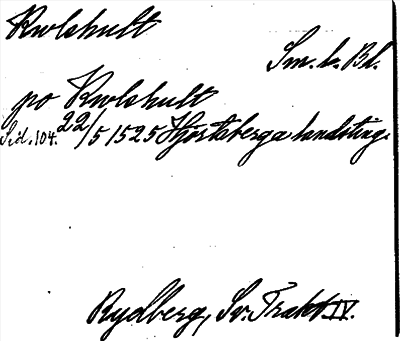 Kwlshult
Sm. k. Bl.
po Kwlshult
Sid. 104. 22/5 1525 Hjortsberga landsting.
Rydberg, Sv. Trakt. IV.